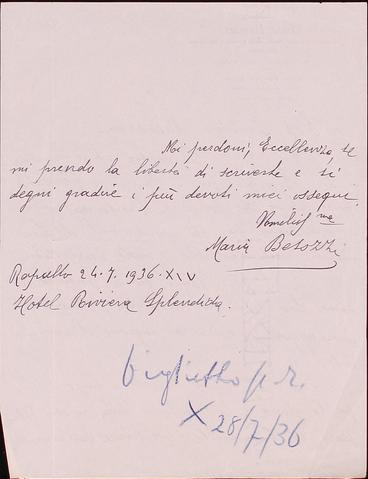 Mi perdoni, Eccellenza, se
mi prendo la libertà di scriverle e si
degni gradire i più devoti miei ossequi.
Umiliss ma
Maria Belozzi
Rapallo 24.7.1936.XIV
Hotel Riviera Splendida.
biglietto p.r.
X 28/7/36